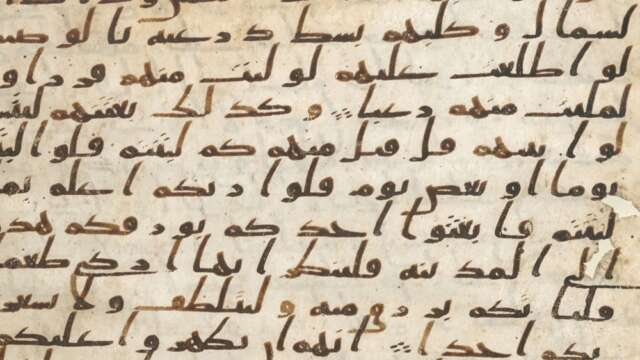 لشمال و كلبهم بسط ذرعيه بالوصيد
لو اطلعت عليهم لوليت منهم فررا و
لملئت منهم رعبا و كذلك بعثنهم ليتسا
لوا بينهم قل قيل منهم كم لبثتم قلوا لبثنا
يوما او بعض يوم قلوا ربكم اعلم بما
لبثتم فابعثوا احدكم بورقكم هذه
الى المدينه فلينظر ايها ازكى طعما
فلياتكم برزق منه و ليتلطف و لا يشعرن
بكم احدا انهم ان يظهروا عليكم